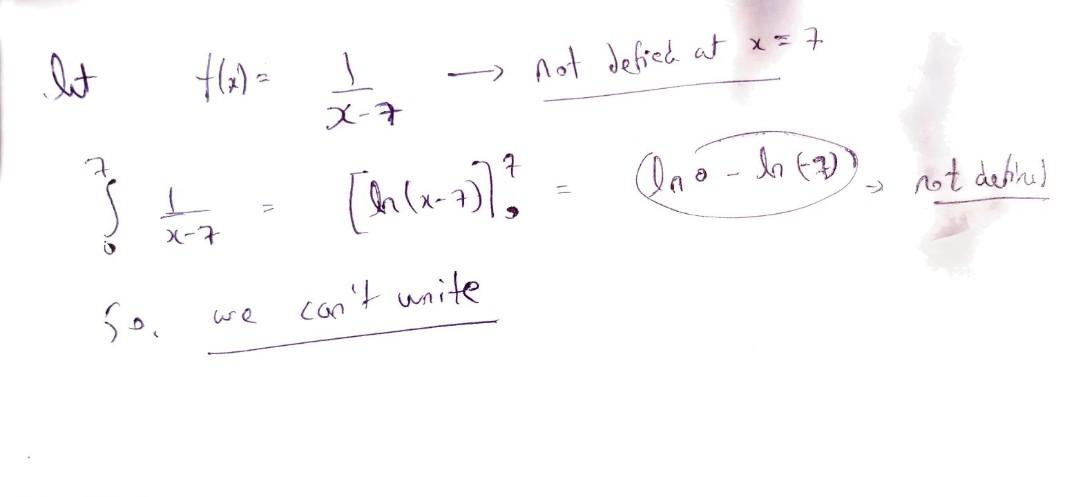 let f(x) = 1/(x-7) → not defied at x = 7
∫₀⁷ 1/(x-7) = [ln(x-7)]₀⁷ = (ln 0 - ln(-7)) → not defined
So, we can't write